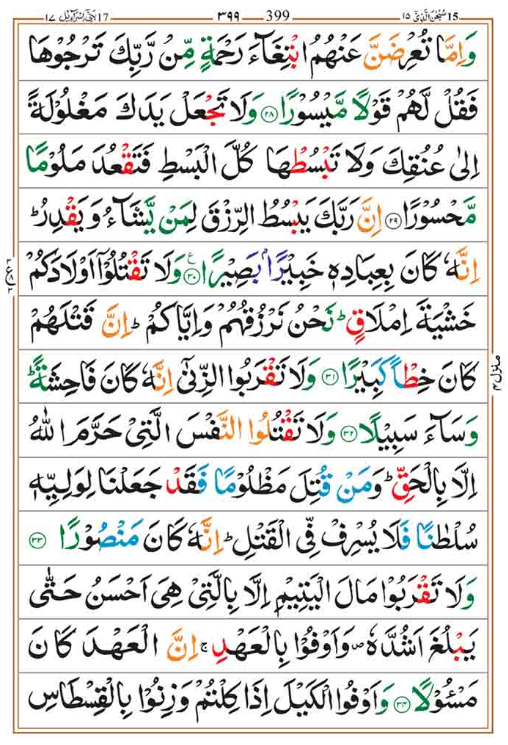 سبحن الذى ١٥ 15 399 ٣٩٩ 17 بنى اسرآءيل ١٧
وَاِمَّا تُعۡرِضَنَّ عَنۡهُمُ ابۡتِغَآءَ رَحۡمَةٍ مِّنۡ رَّبِّكَ تَرۡجُوۡهَا
فَقُلْ لَّهُمۡ قَوۡلًا مَّيۡسُوۡرًا ﴿۲۸﴾ وَلَا تَجۡعَلۡ يَدَكَ مَغۡلُوۡلَةً
اِلٰى عُنُقِكَ وَلَا تَبۡسُطۡهَا كُلَّ الۡبَسۡطِ فَتَقۡعُدَ مَلُوۡمًا
مَّحۡسُوۡرًا ﴿۲۹﴾ اِنَّ رَبَّكَ يَبۡسُطُ الرِّزۡقَ لِمَنۡ يَّشَآءُ وَيَقۡدِرُ ؕ
اِنَّهٗ كَانَ بِعِبَادِهٖ خَبِيۡرًۢا بَصِيۡرًا ﴿۳۰﴾ وَلَا تَقۡتُلُوۡۤا اَوۡلَادَكُمۡ
خَشۡيَةَ اِمۡلَاقٍ ؕ نَحۡنُ نَرۡزُقُهُمۡ وَاِيَّاكُمۡ ؕ اِنَّ قَتۡلَهُمۡ
كَانَ خِطۡاً كَبِيۡرًا ﴿۳۱﴾ وَلَا تَقۡرَبُوا الزِّنٰٓى اِنَّهٗ كَانَ فَاحِشَةً ؕ
وَسَآءَ سَبِيۡلًا ﴿۳۲﴾ وَلَا تَقۡتُلُوا النَّفۡسَ الَّتِىۡ حَرَّمَ اللّٰهُ
اِلَّا بِالۡحَقِّ ؕ وَمَنۡ قُتِلَ مَظۡلُوۡمًا فَقَدۡ جَعَلۡنَا لِوَلِيِّهٖ
سُلۡطٰنًا فَلَا يُسۡرِفْ فِّى الۡقَتۡلِ ؕ اِنَّهٗ كَانَ مَنۡصُوۡرًا ﴿۳۳﴾
وَلَا تَقۡرَبُوۡا مَالَ الۡيَتِيۡمِ اِلَّا بِالَّتِىۡ هِىَ اَحۡسَنُ حَتّٰى
يَبۡلُغَ اَشُدَّهٗ ۖ وَاَوۡفُوۡا بِالۡعَهۡدِ ۚ اِنَّ الۡعَهۡدَ كَانَ
مَسۡـُٔوۡلًا ﴿۳۴﴾ وَاَوۡفُوا الۡكَيۡلَ اِذَا كِلۡتُمۡ وَزِنُوۡا بِالۡقِسۡطَاسِ
منزل ۴